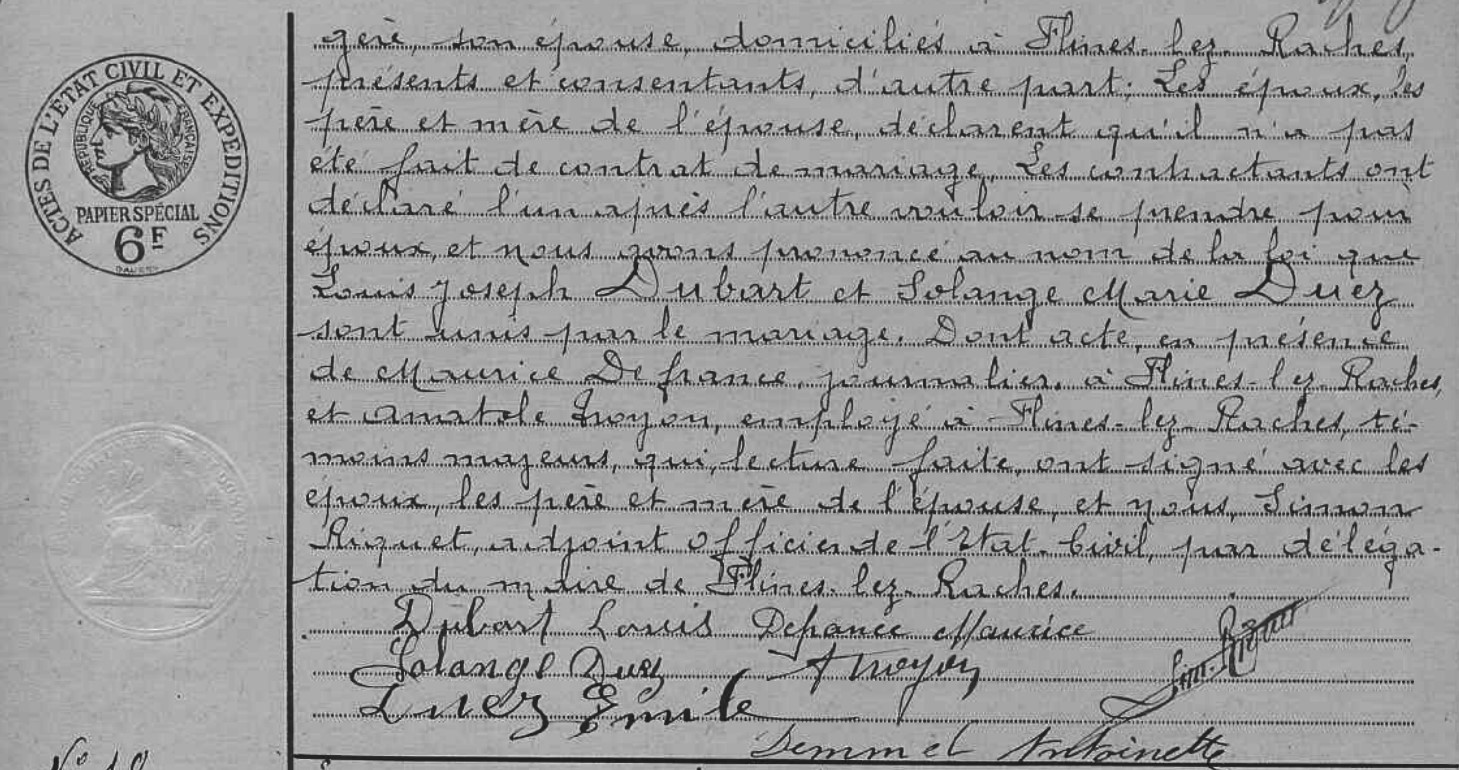 ACTES DE L'ÉTAT CIVIL ET EXPEDITIONS
RÉPUBLIQUE FRANÇAISE
PAPIER SPÉCIAL
6F
gère, son épouse, domiciliés à Flines-lez-Raches,
présents et consentants, d'autre part; Les époux, les
père et mère de l'épouse, déclarent qu'il n'a pas
été fait de contrat de mariage. Les contractants ont
déclaré l'un après l'autre vouloir se prendre pour
époux, et nous avons prononcé au nom de la loi que
Louis Joseph Dubart et Solange Marie Duez
sont unis par le mariage. Dont acte, en présence
de Maurice Defrance, journalier, à Flines-lez-Raches,
et Anatole Troyon, employé à Flines-lez-Raches, té-
moins majeurs, qui, lecture faite, ont signé avec les
époux, les père et mère de l'épouse, et nous, Simon
Riquet, adjoint officier de l'Etat-Civil, par déléga-
tion du maire de Flines-lez-Raches.
Dubart Louis Defrance Maurice
Solange Duez A Troyon Sim. Riquet
Duez Émile
Demmel Antoinette
N° 10